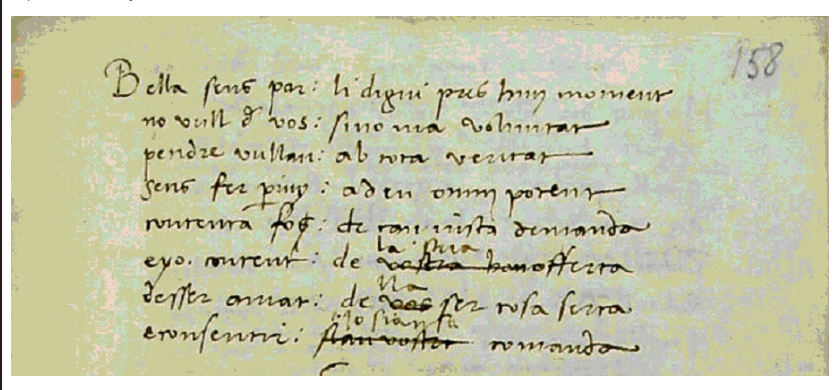 158
Bella sens par: li digui pres hun moment
no vull d vos: sino ma voluntat
pendre vullau: ab tota veritat
sens fer : a deu omni potent
contenta fog: de tan iusta demanda
eyo. content: de vostra bon offerta
la sua
desser amat: de vos ser cosa serta
lla
econsentir: comanda